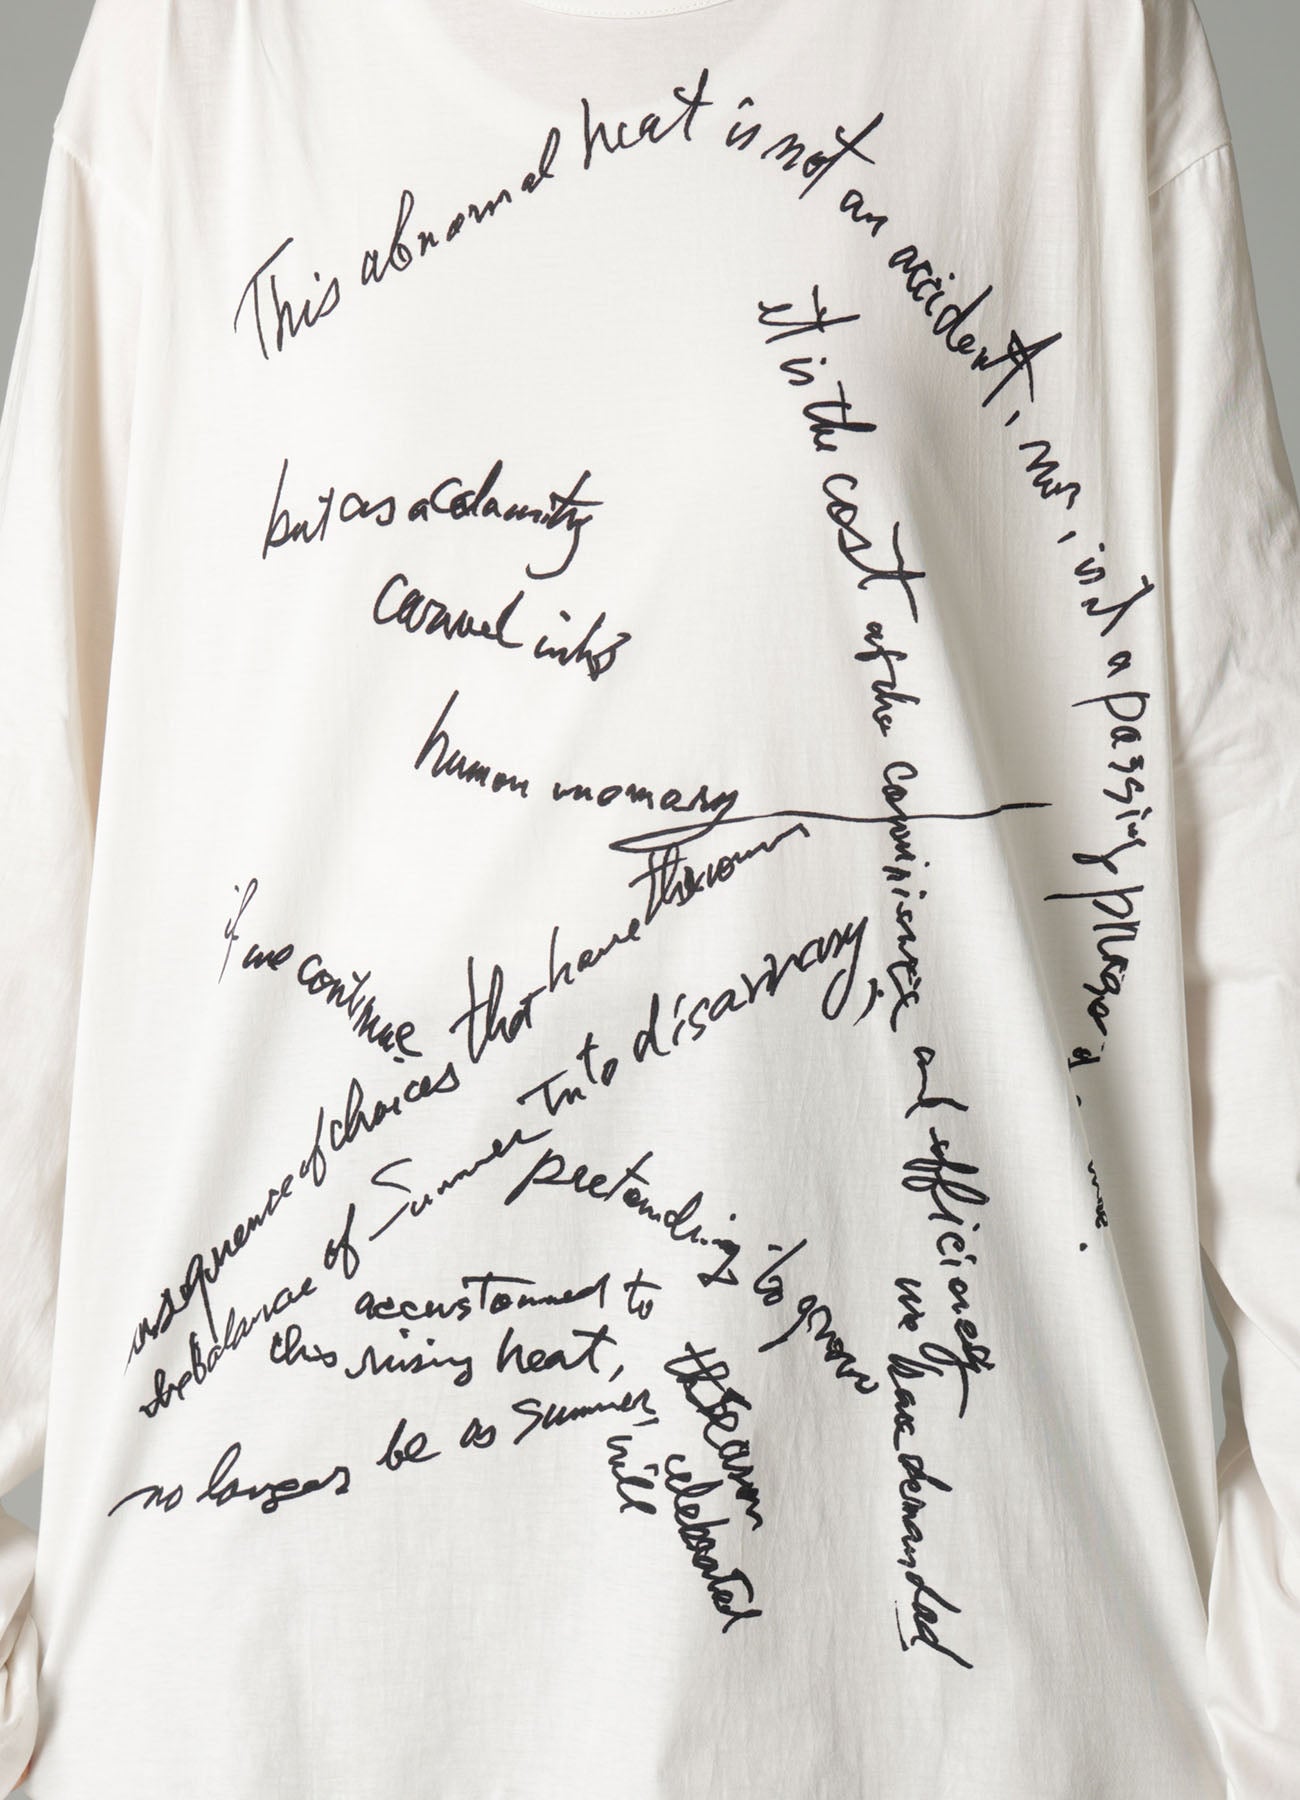 This abnormal heat is not an accident, nor, is it a passing phrase
it is the cost of the convinience and efficiency
we have demanded
but as a calamity
carved into
human memory
if we continue
that have thrown
consequence of choices
the balance of Summer Into disarray,
pretending to grow
accustomed to
this rising heat,
the season
celebrated
no longer be as summer,
will